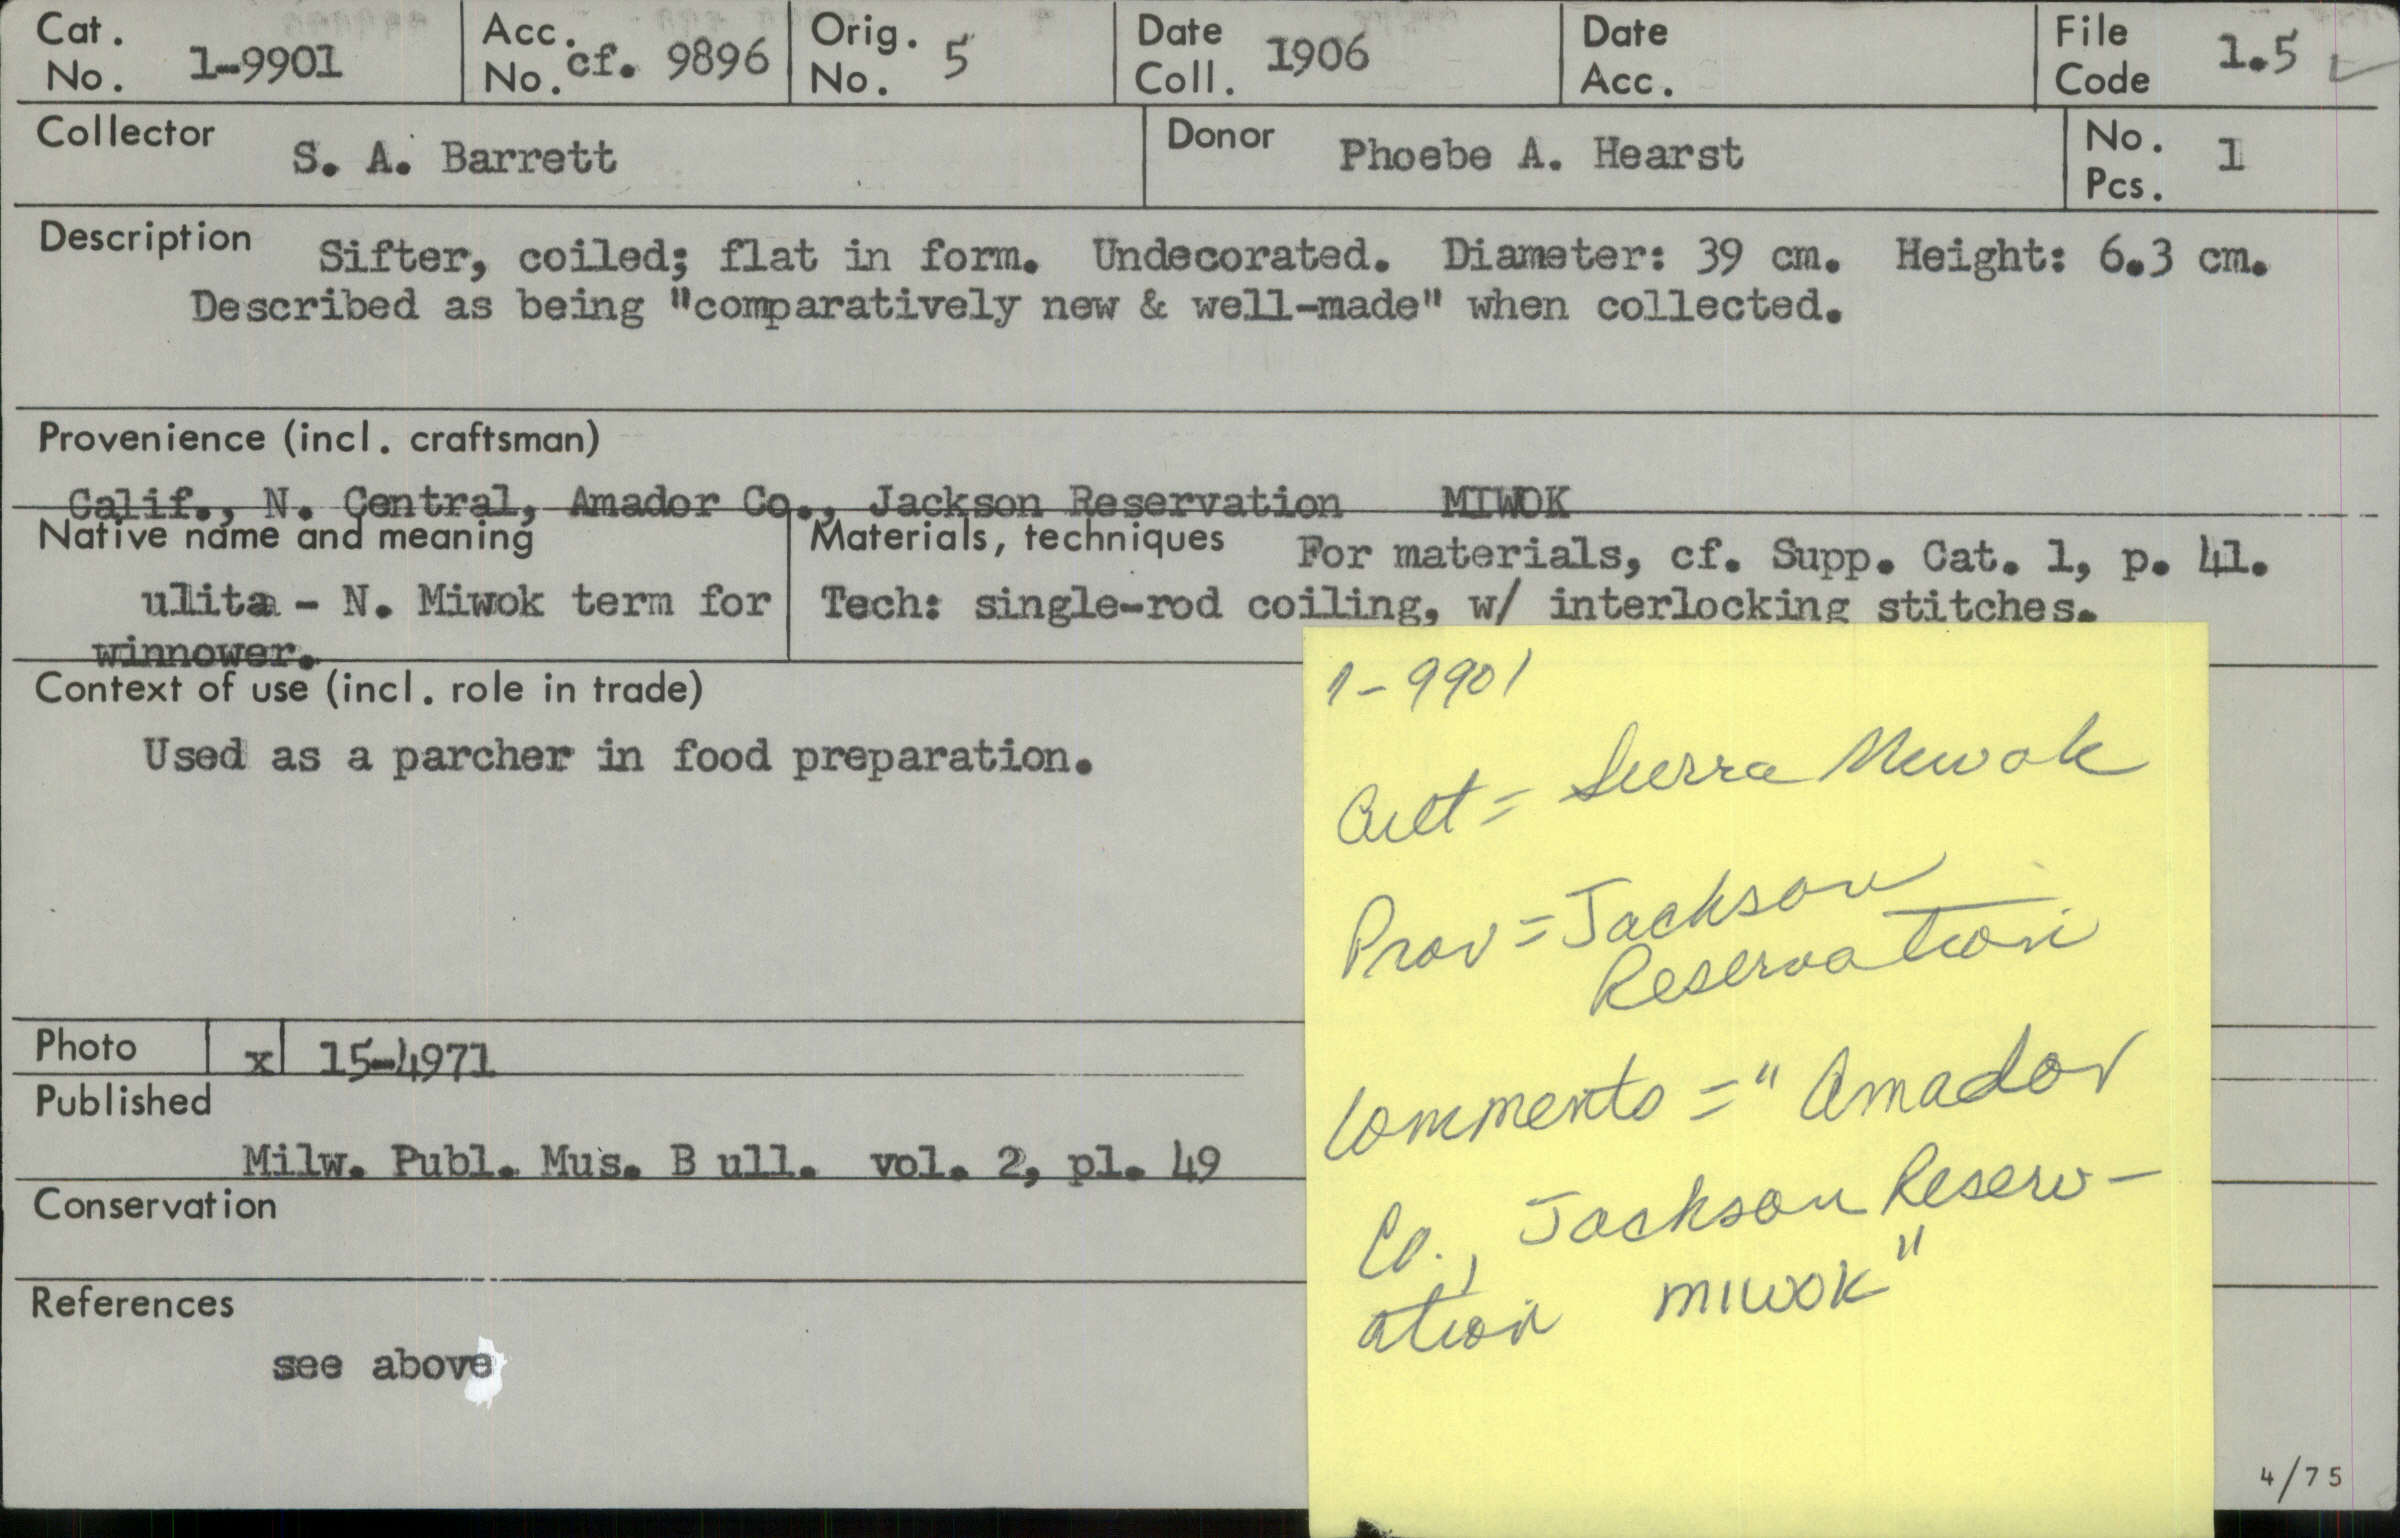 Cat. No. 1-9901 Acc. No. cf. 9896 Orig. No. 5 Date Coll. 1906 Date Acc. File Code 1.5 ✓
Collector S. A. Barrett Donor Phoebe A. Hearst No. Pcs. 1
Description Sifter, coiled; flat in form. Undecorated. Diameter: 39 cm. Height: 6.3 cm.
Described as being "comparatively new & well-made" when collected.
Provenience (incl. craftsman)
Calif., N. Central, Amador Co., Jackson Reservation MIWOK
Native name and meaning
ulita - N. Miwok term for
winnower.
Materials, techniques For materials, cf. Supp. Cat. 1, p. 41.
Tech: single-rod coiling, w/ interlocking stitches.
Context of use (incl. role in trade)
Used as a parcher in food preparation.
Photo x 15-4971
Published
Milw. Publ. Mus. B ull. vol. 2, pl. 49
Conservation
References
see above
1-9901
Cult = Sierra Miwok
Prov = Jackson
Reservation
Comments = "Amador
Co., Jackson Reserv-
ation MIWOK"
4/75